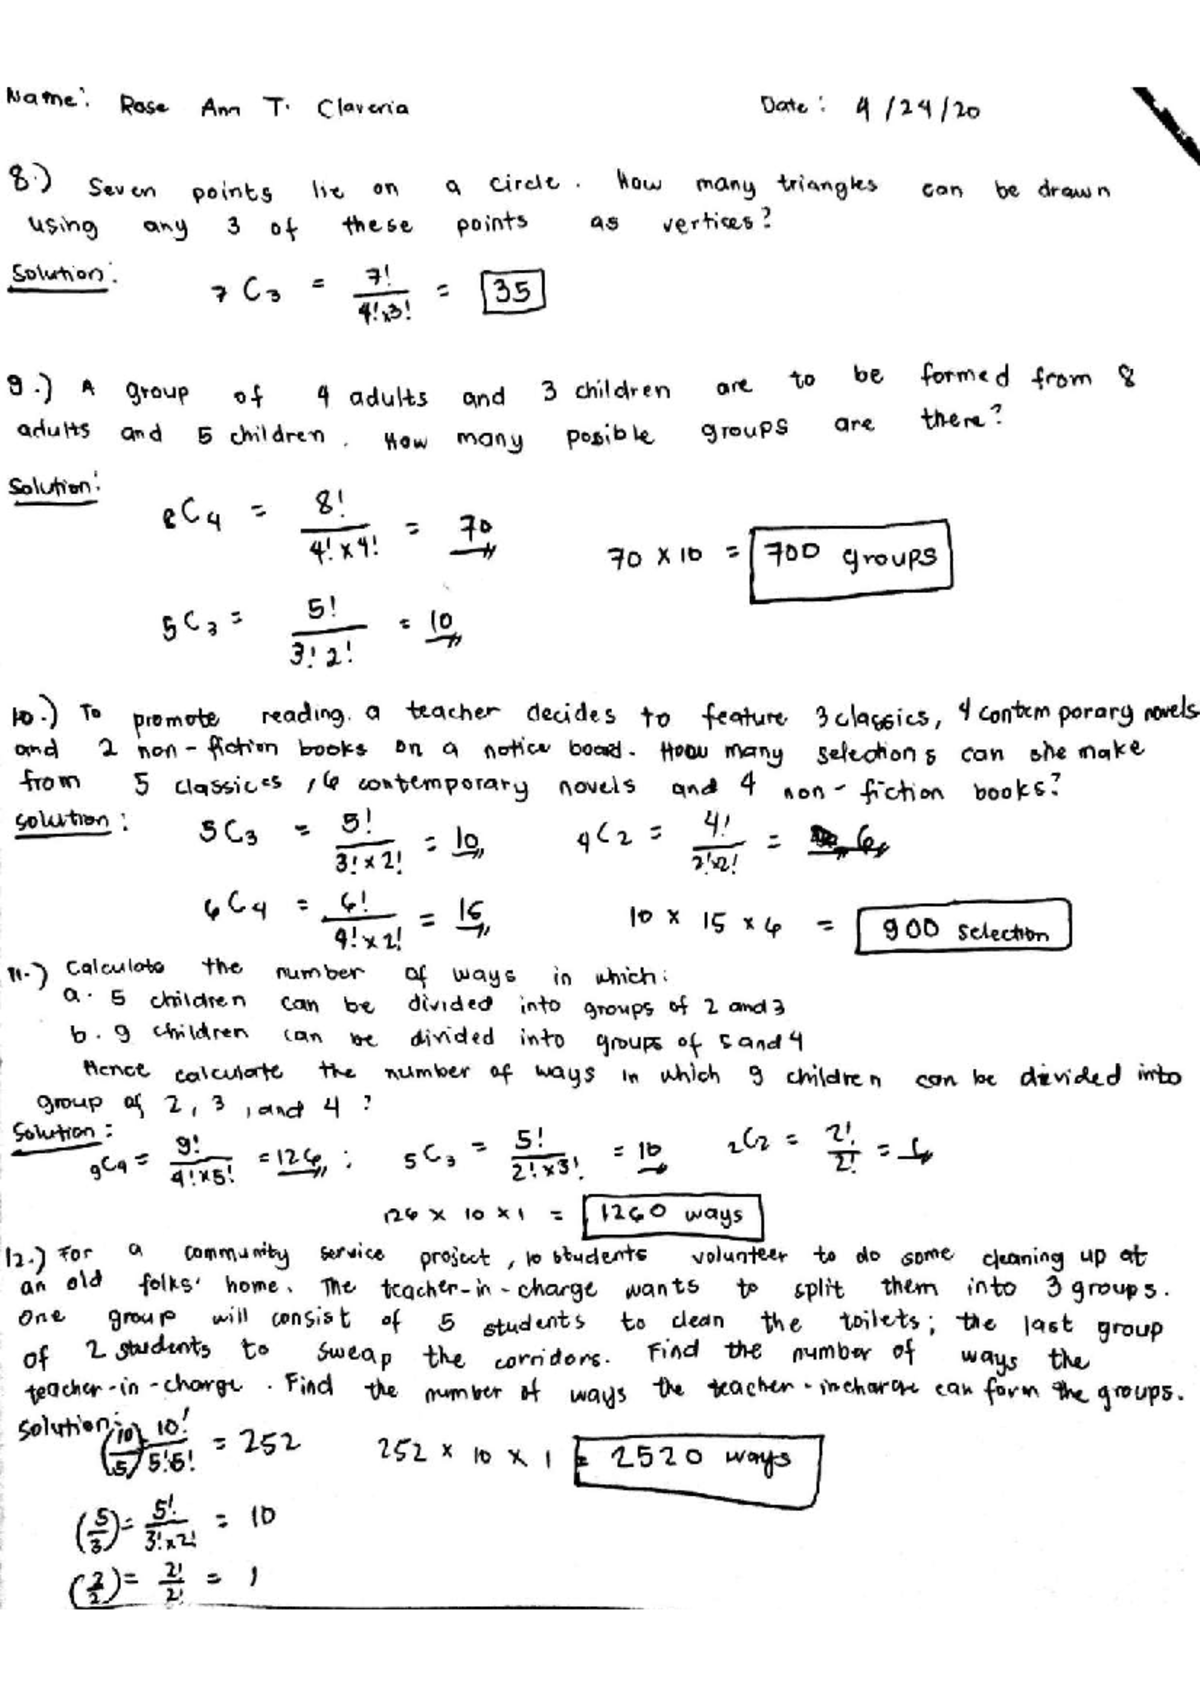 Name: Rose Ann T. Claveria Date: 4/24/20
8.) Seven points lie on a circle. How many triangles can be drawn
using any 3 of these points as vertices?
Solution: 7C3 = 7!/4!x3! = 35
9.) A group of 4 adults and 3 children are to be formed from 8
adults and 5 children. How many posible groups are there?
Solution:
8C4 = 8!/4!x4! = 70
70 x 10 = 700 groups
5C3 = 5!/3!2! = 10
10.) To promote reading. a teacher decides to feature 3 classics, 4 contemporary novels
and 2 non-fiction books on a notice board. How many selections can she make
from 5 classices, 6 contemporary novels and 4 non-fiction books?
Solution: 5C3 = 5!/3!x2! = 10 4C2 = 4!/2!x2! = 6
6C4 = 6!/4!x2! = 15 10 x 15 x 6 = 900 selection
11.) Calculate the number of ways in which:
a. 5 children can be divided into groups of 2 and 3
b. 9 children can be divided into groups of 5 and 4
Hence calculate the number of ways in which 9 children can be divided into
group of 2, 3, and 4?
Solution:
9C4 = 9!/4!x5! = 126; 5C3 = 5!/2!x3! = 10 2C2 = 2!/2! = 1
126 x 10 x 1 = 1260 ways
12.) For a community service project, 10 students volunteer to do some cleaning up at
an old folks' home. The teacher-in-charge wants to split them into 3 groups.
One group will consist of 5 students to clean the toilets; the last group
of 2 students to sweap the corridors. Find the number of ways the
teacher-in-charge. Find the number of ways the teacher-incharge can form the groups.
Solution:
(10/5) = 10!/5!5! = 252 252 x 10 x 1 = 2520 ways
(5/3) = 5!/3!x2! = 10
(2/2) = 2!/2! = 1